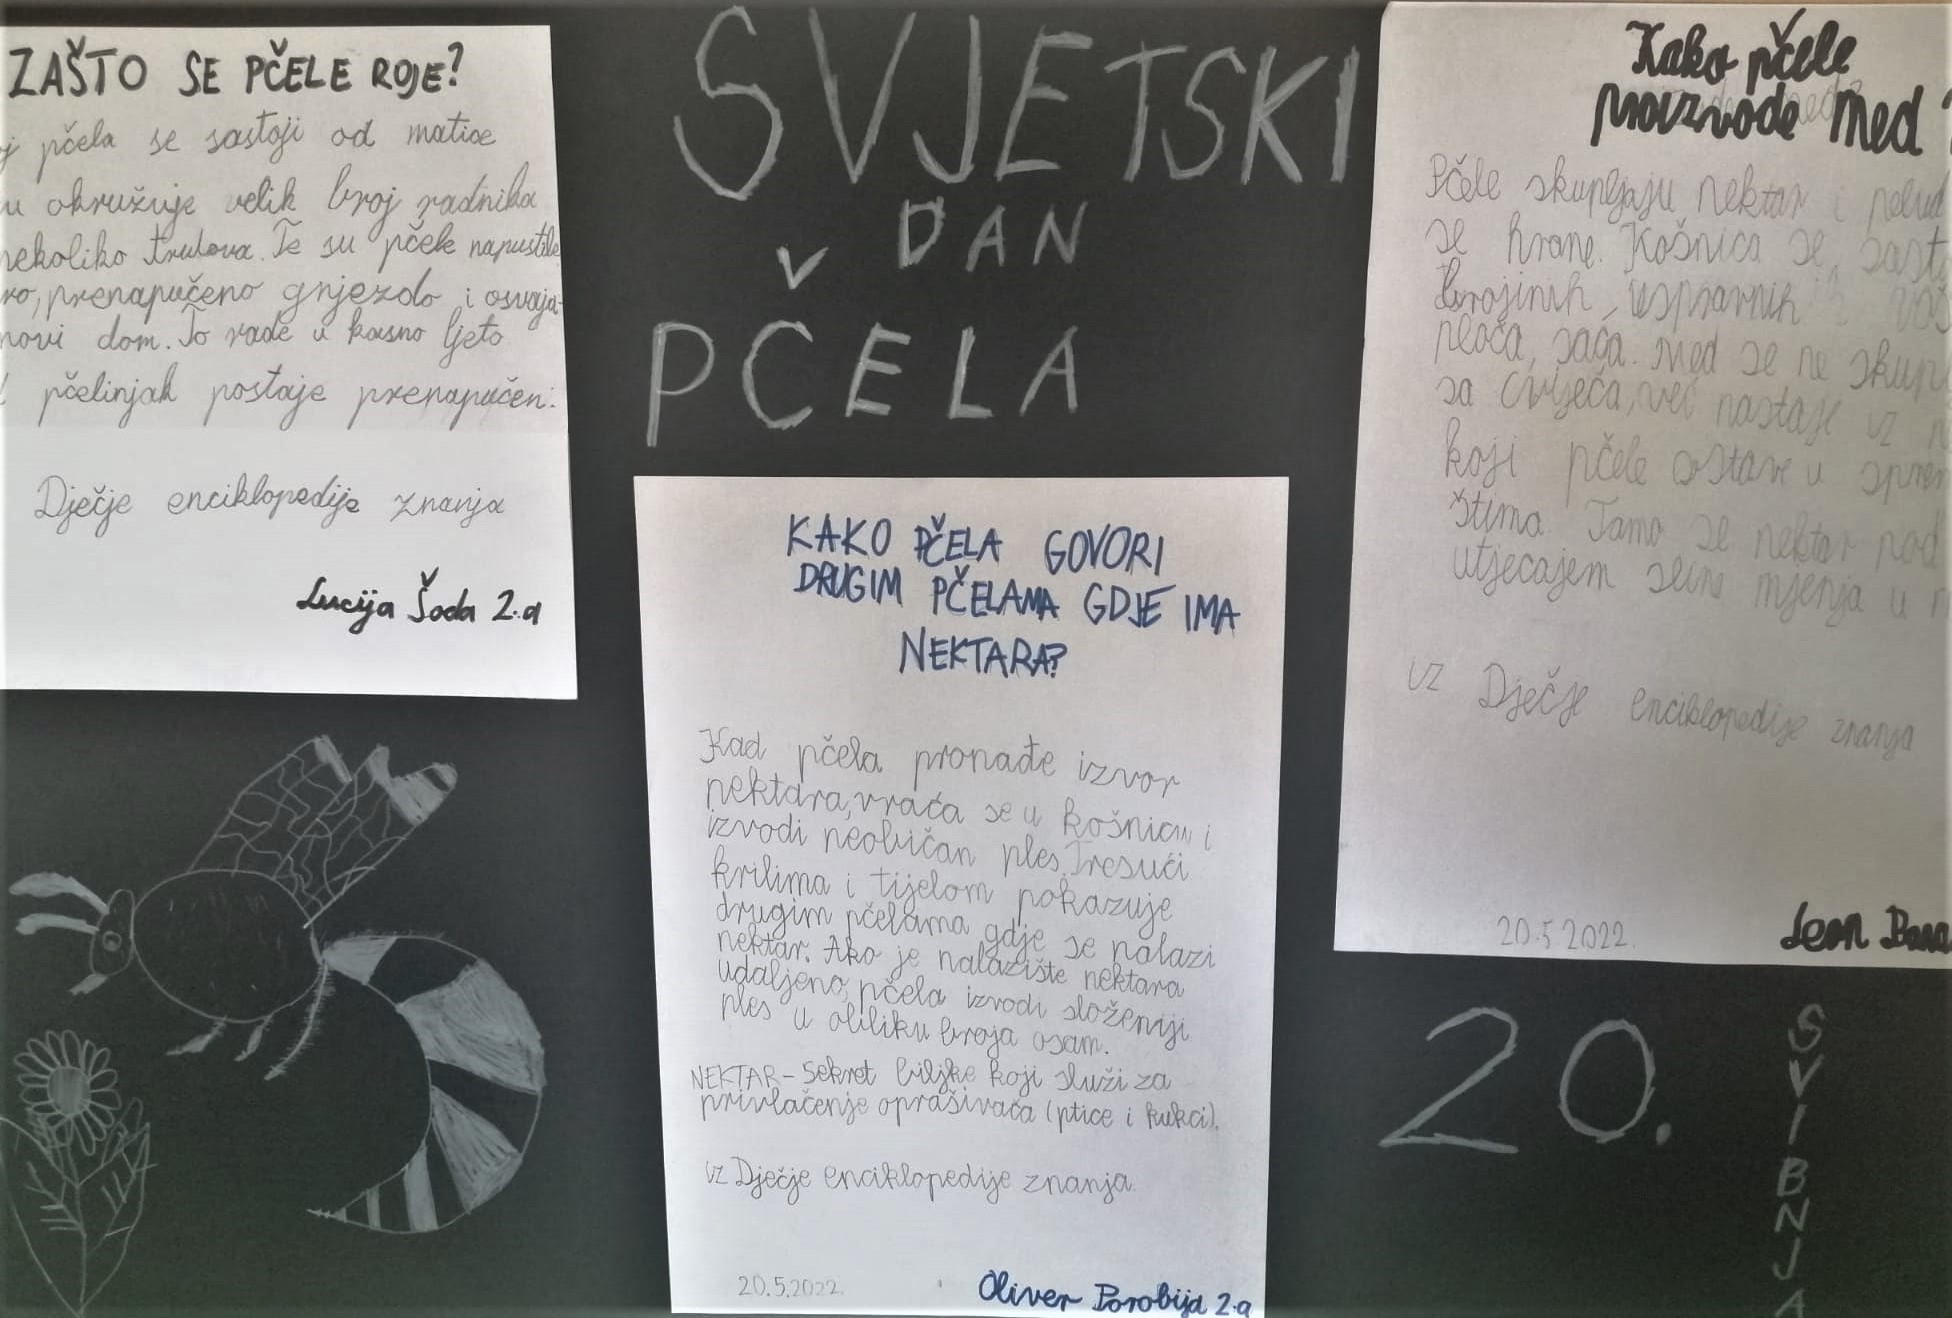 ZAŠTO SE PČELE ROJE?
pčela se sastoji od matice
okružuje velik broj radnika
nekoliko trutova. Te su pčele napustile
prenapučeno gnjezdo i osvaja-
novi dom. To rade u kasno ljeto
pčelinjak postaje prenapučen.
Dječje enciklopedije znanja
Lucija Šoda 2.a
SVJETSKI
DAN
PČELA
KAKO PČELA GOVORI
DRUGIM PČELAMA GDJE IMA
NEKTARA?
Kad pčela pronađe izvor
nektara, vraća se u košnicu i
izvodi neobičan ples. Tresući
krilima i tijelom pokazuje
drugim pčelama gdje se nalazi
nektar. Ako je nalazište nektara
udaljeno, pčela izvodi složeniji
ples u obliku broja osam.
NEKTAR - sekret biljke koji služi za
privlačenje oprašivača (ptice i kukci).
IZ Dječje enciklopedije znanja.
20.5.2022.
Oliver Porobija 2.a
Kako pčele
proizvode med?
Pčele skupljaju nektar i pelud
se hrane. Košnica se sasto
brojinih, uspravnih
ploča, saća. Med se ne skup
sa cvijeća, već nastaje iz
koji pčele ostave u sprem
štima. Tamo se nektar pod
utjecajem mjenja u
IZ Dječje enciklopedije znanja
20.5.2022.
Leon
20.
SVIBNJA